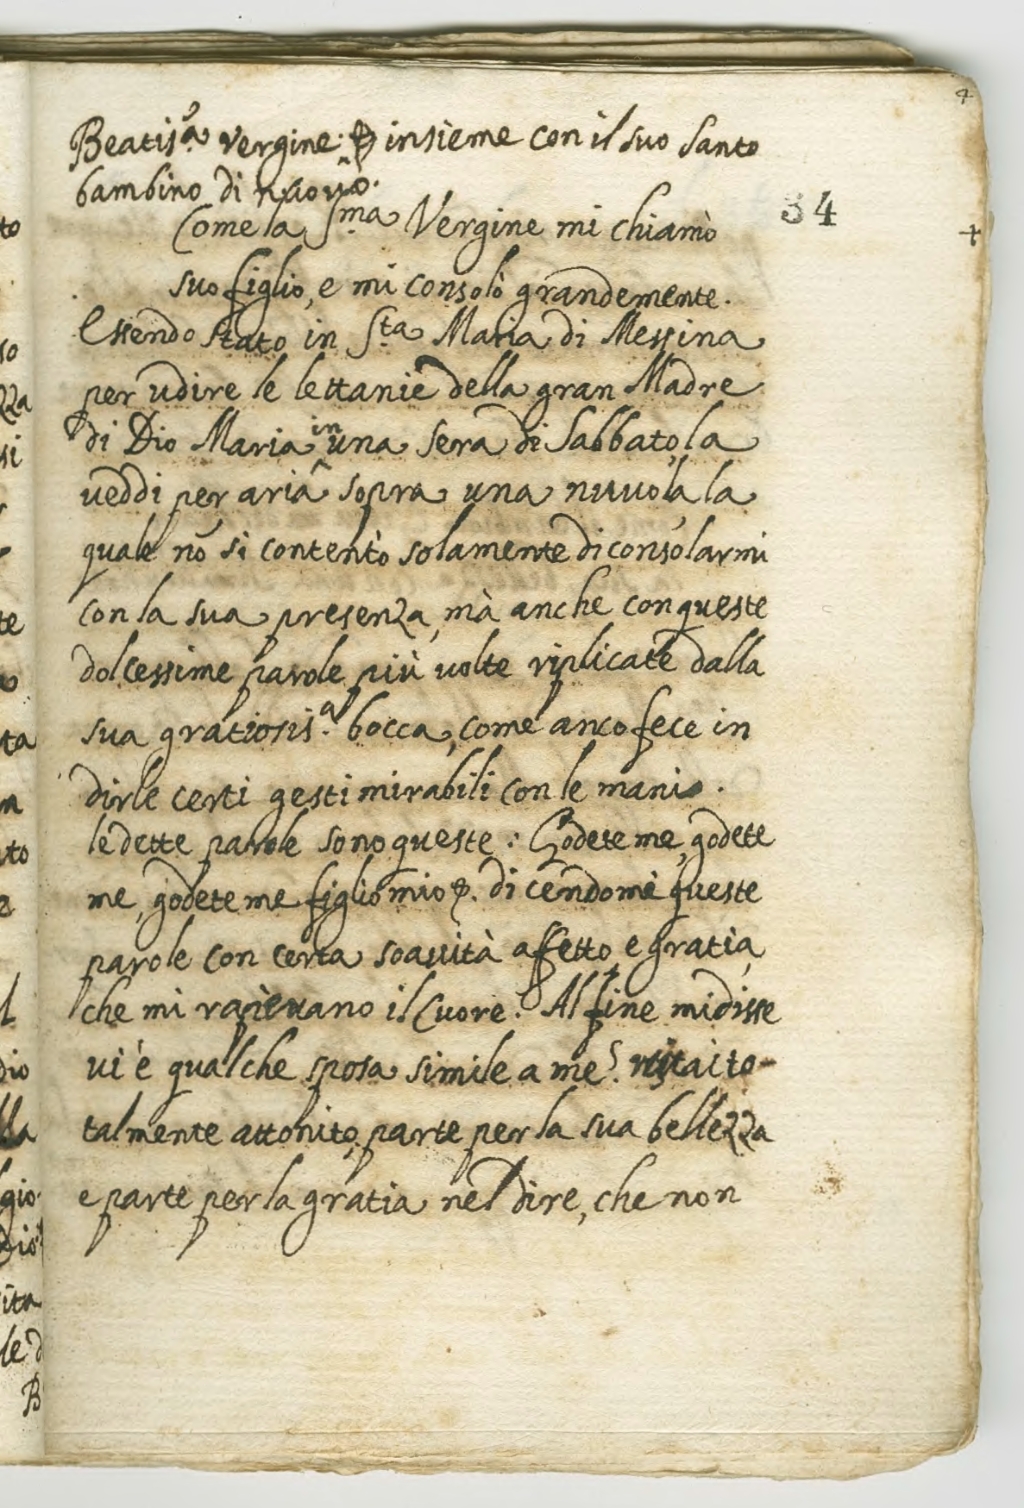 4
Beatis.a vergine: & insieme con il suo Santo
bambino di nuovo.
34
Come la Sma Vergine mi chiamò
+
suo figlio, e mi consolò grandemente.
Essendo stato in Sta Maria di Messina
per udire le lettanie della gran Madre
di Dio Maria in una sera di Sabbato, la
ueddi per aria sopra una nuuola, la
quale nõ si contentò solamente di consolarmi
con la sua presenza, mà anche con queste
dolcessime parole più uolte riplicate dalla
sua gratiosis.a bocca, come anco fece in
dirle certi gesti mirabili con le mani.
le dette parole sono queste: Godete me, godete
me, godete me figlio mio &. dicendome queste
parole con certa soauità affetto e gratia,
che mi rapieuano il Cuore. Al fine mi disse
ui è qualche sposa simile a me? restai to-
talmente attonito, parte per la sua bellezza
e parte per la gratia nel dire, che non